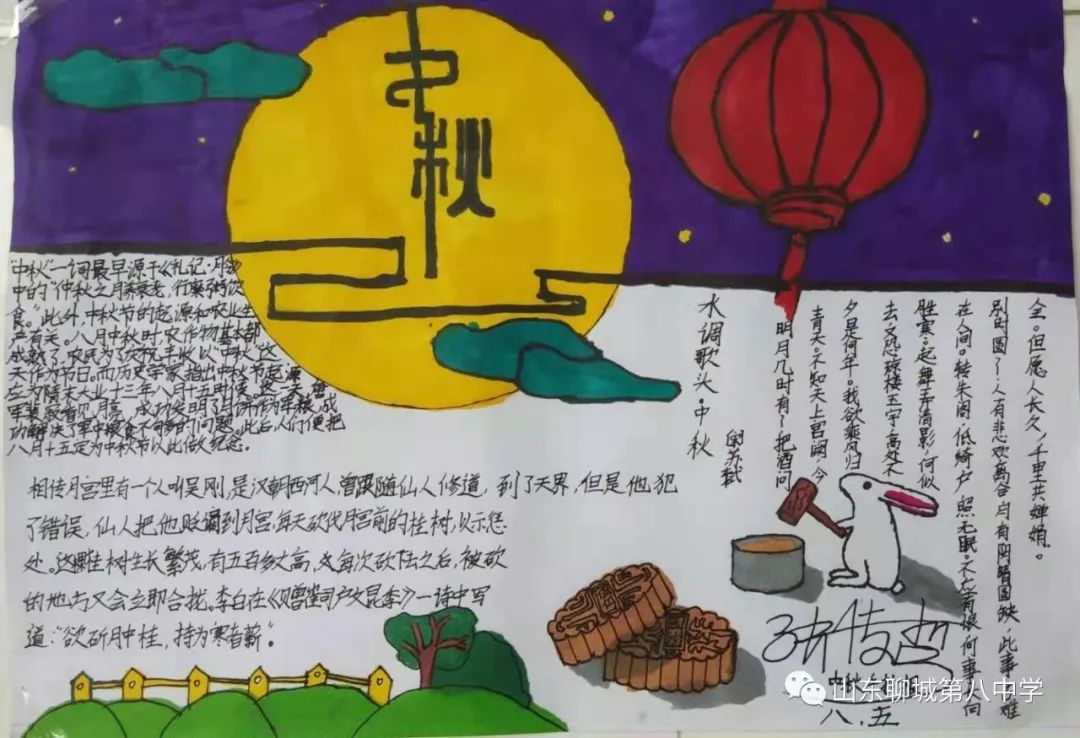 中秋
"中秋"一词最早源于《礼记·月令》
中的"仲秋之月养衰老,行糜粥饮
食。"此外,中秋节的起源和农业生
产有关。八月中秋时,农作物基本都
成熟了,农民为了庆祝丰收,以"中秋"这
天作为节日。而历史学家指出中秋节起源
应为隋末大业十三年八月十五时候,唐
军裴寂看见月亮,成功发明了月饼作为军粮,成
功解决了军中粮食不够的问题。此后,人们便把
八月十五定为中秋节以此做纪念。
相传月宫里有一个人叫吴刚,是汉朝西河人,曾跟随仙人修道,到了天界,但是他犯
了错误,仙人把他贬谪到月宫,每天砍伐月宫前的桂树,以示惩
处。这棵桂树生长繁茂,有五百多丈高,每次砍法之后,被砍
的地方又会立即合拢,李白在《赠崔司户文昆季》一诗中写
道:"欲斫月中桂,持为寒者薪"。
水调歌头·中秋
苏轼
明月几时有?把酒问
青天。不知天上宫阙,今
夕是何年。我欲乘风归
去,又恐琼楼玉宇,高处不
胜寒。起舞弄清影,何似
在人间。转朱阁,低绮户,照无眠。不应有恨,何事长向
别时圆?人有悲欢离合,月有阴晴圆缺,此事古难
全。但愿人长久,千里共婵娟。
八.五
山东聊城第八中学